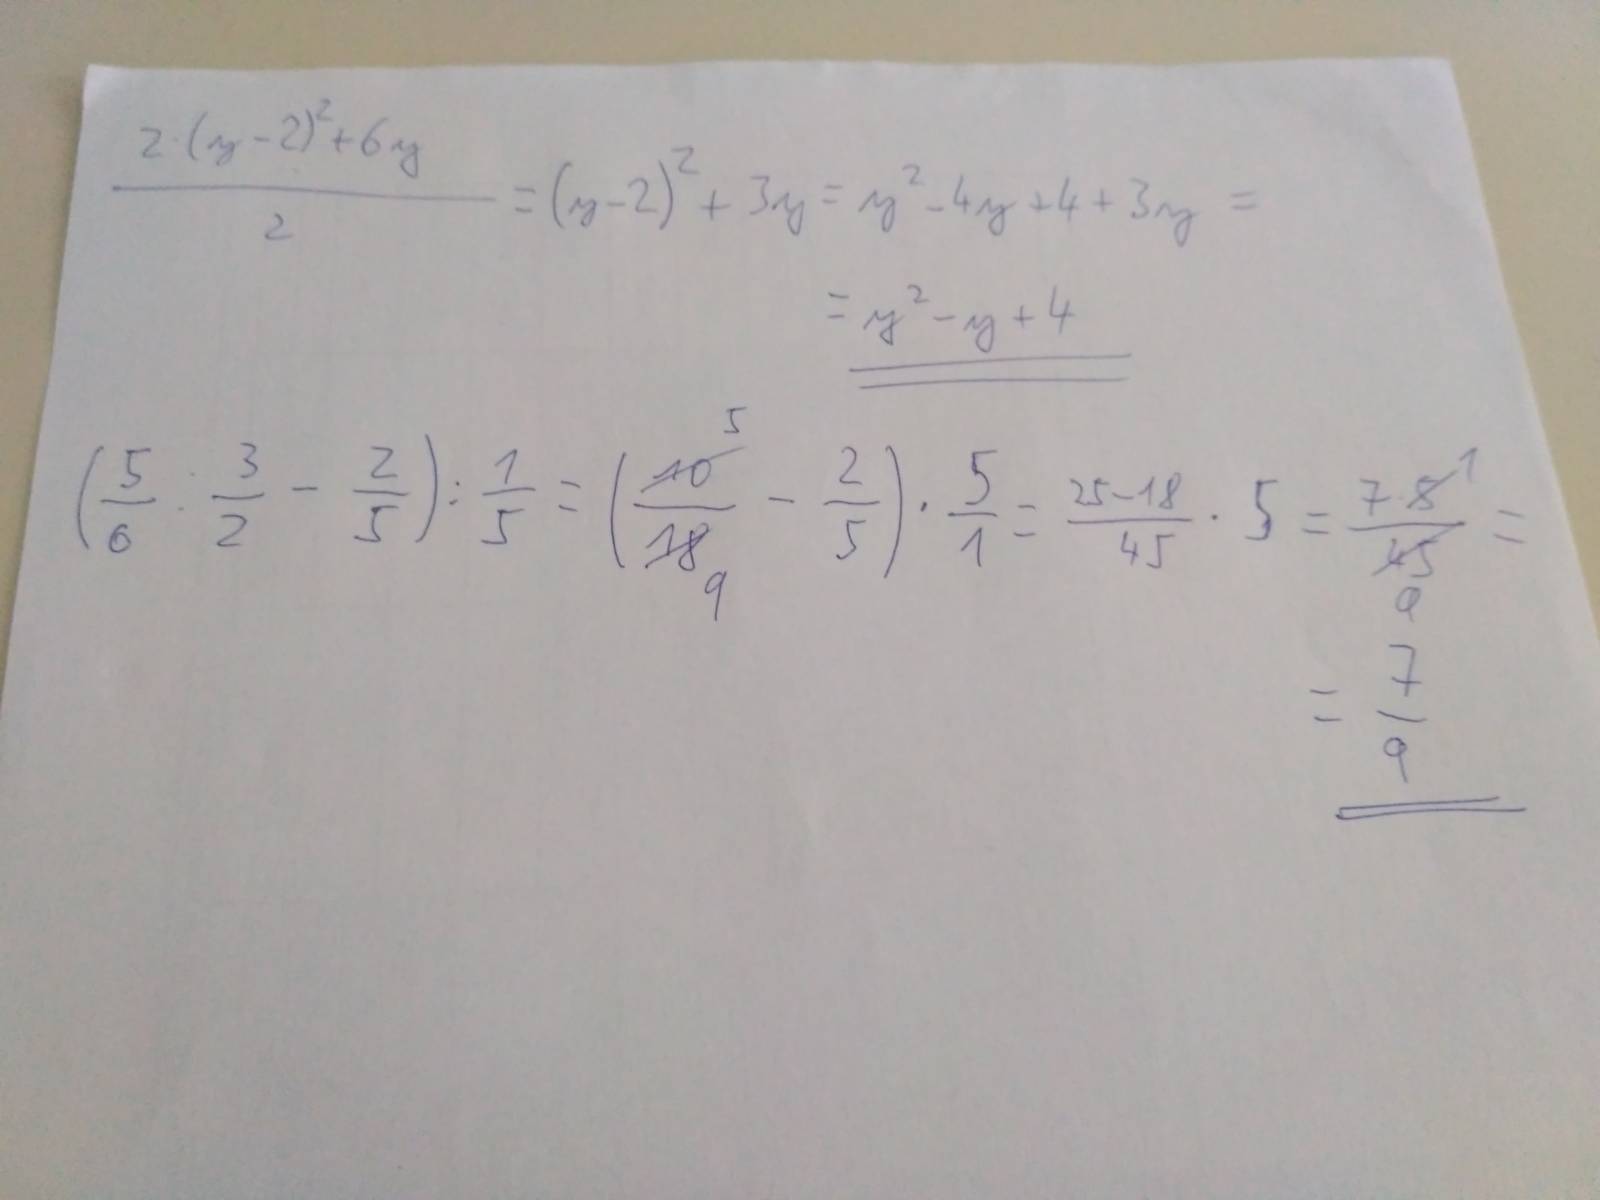 (2·(y-2)²+6y)/2 = (y-2)² + 3y = y² - 4y + 4 + 3y =
= y² - y + 4
(5/6 : 3/2 - 2/5) : 1/5 = (10̶ 5/1̶8̶ 9 - 2/5) · 5/1 = (25-18)/45 · 5 = (7·5̶ 1)/(4̶5̶ 9) =
= 7/9